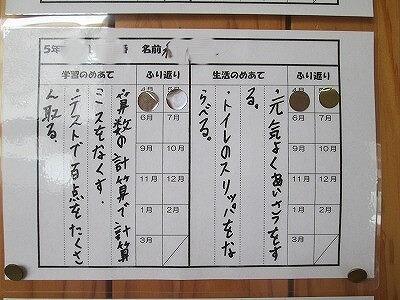 5年 番 名前
学習のめあて ふり返り 生活のめあて ふり返り
・元気よくあいさつをす
る。
・トイレのスリッパをな
らべる。
6月 7月
9月 10月
11月 12月
1月 2月
3月
・算数の計算で計算
ミスをなくす。
・テストで百点をたくさ
ん取る。
6月 7月
9月 10月
11月 12月
1月 2月
3月